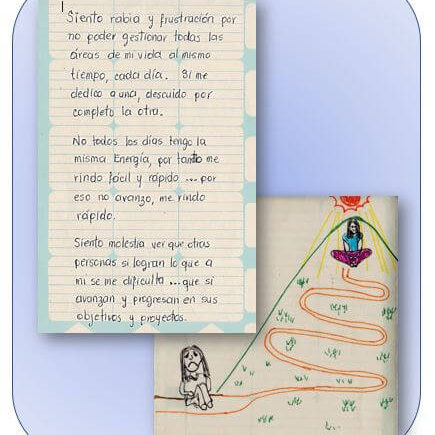 Siento rabia y frustración por
no poder gestionar todas las
áreas de mi vida al mismo
tiempo, cada día. Si me
dedico a una, descuido por
completo la otra.
No todos los días tengo la
misma Energía, por tanto me
rindo fácil y rápido ... por
eso no avanzo, me rindo
rápido.
Siento molestia ver que otras
personas si logran lo que a
mi se me dificulta ... que si
avanzan y progresan en sus
objetivos y proyectos.